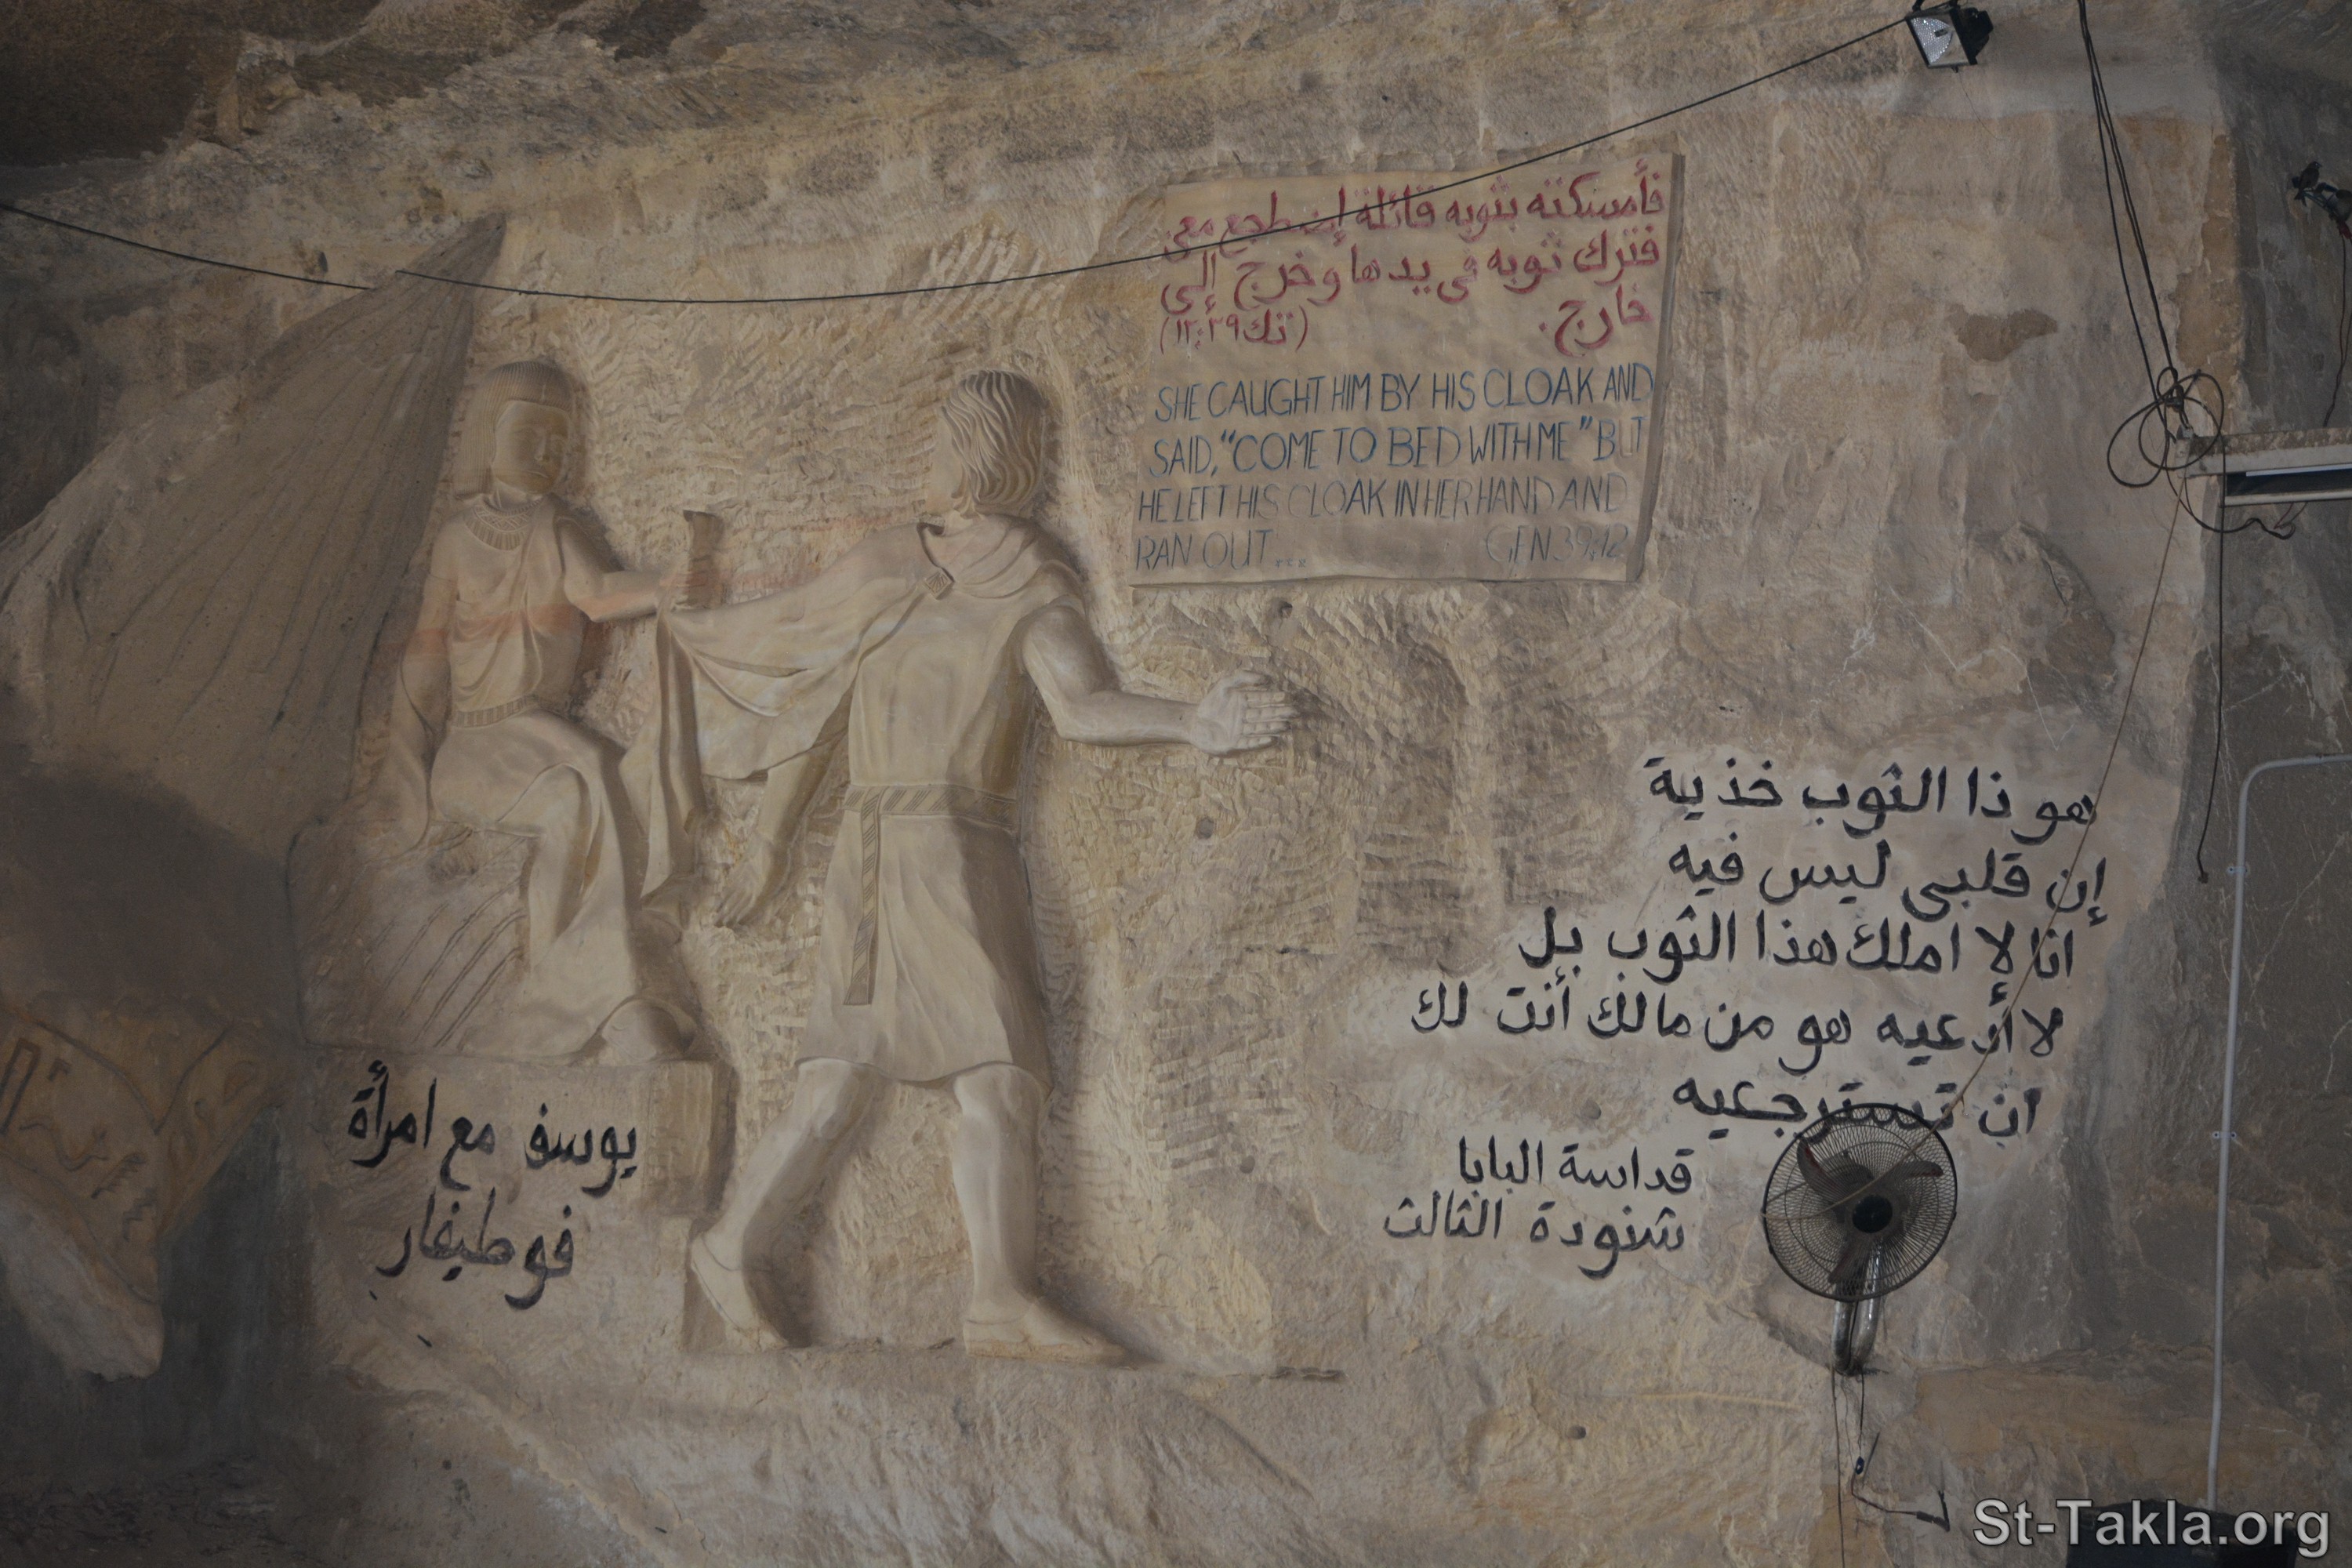 فأمسكته بثوبه قائلة إضطجع معي
فترك ثوبه في يدها وخرج إلى
خارج.
(تك٣٩:١٢)
SHE CAUGHT HIM BY HIS CLOAK AND
SAID, "COME TO BED WITH ME" BUT
HE LEFT HIS CLOAK IN HER HAND AND
RAN OUT.... GEN 39:12
هو ذا الثوب خذية
إن قلبى ليس فيه
انا لا املك هذا الثوب بل
لا أدعيه هو من مالك أنت لك
ان تسترجعيه
قداسة البابا
شنودة الثالث
يوسف مع امرأة
فوطيفار
St-Takla.org